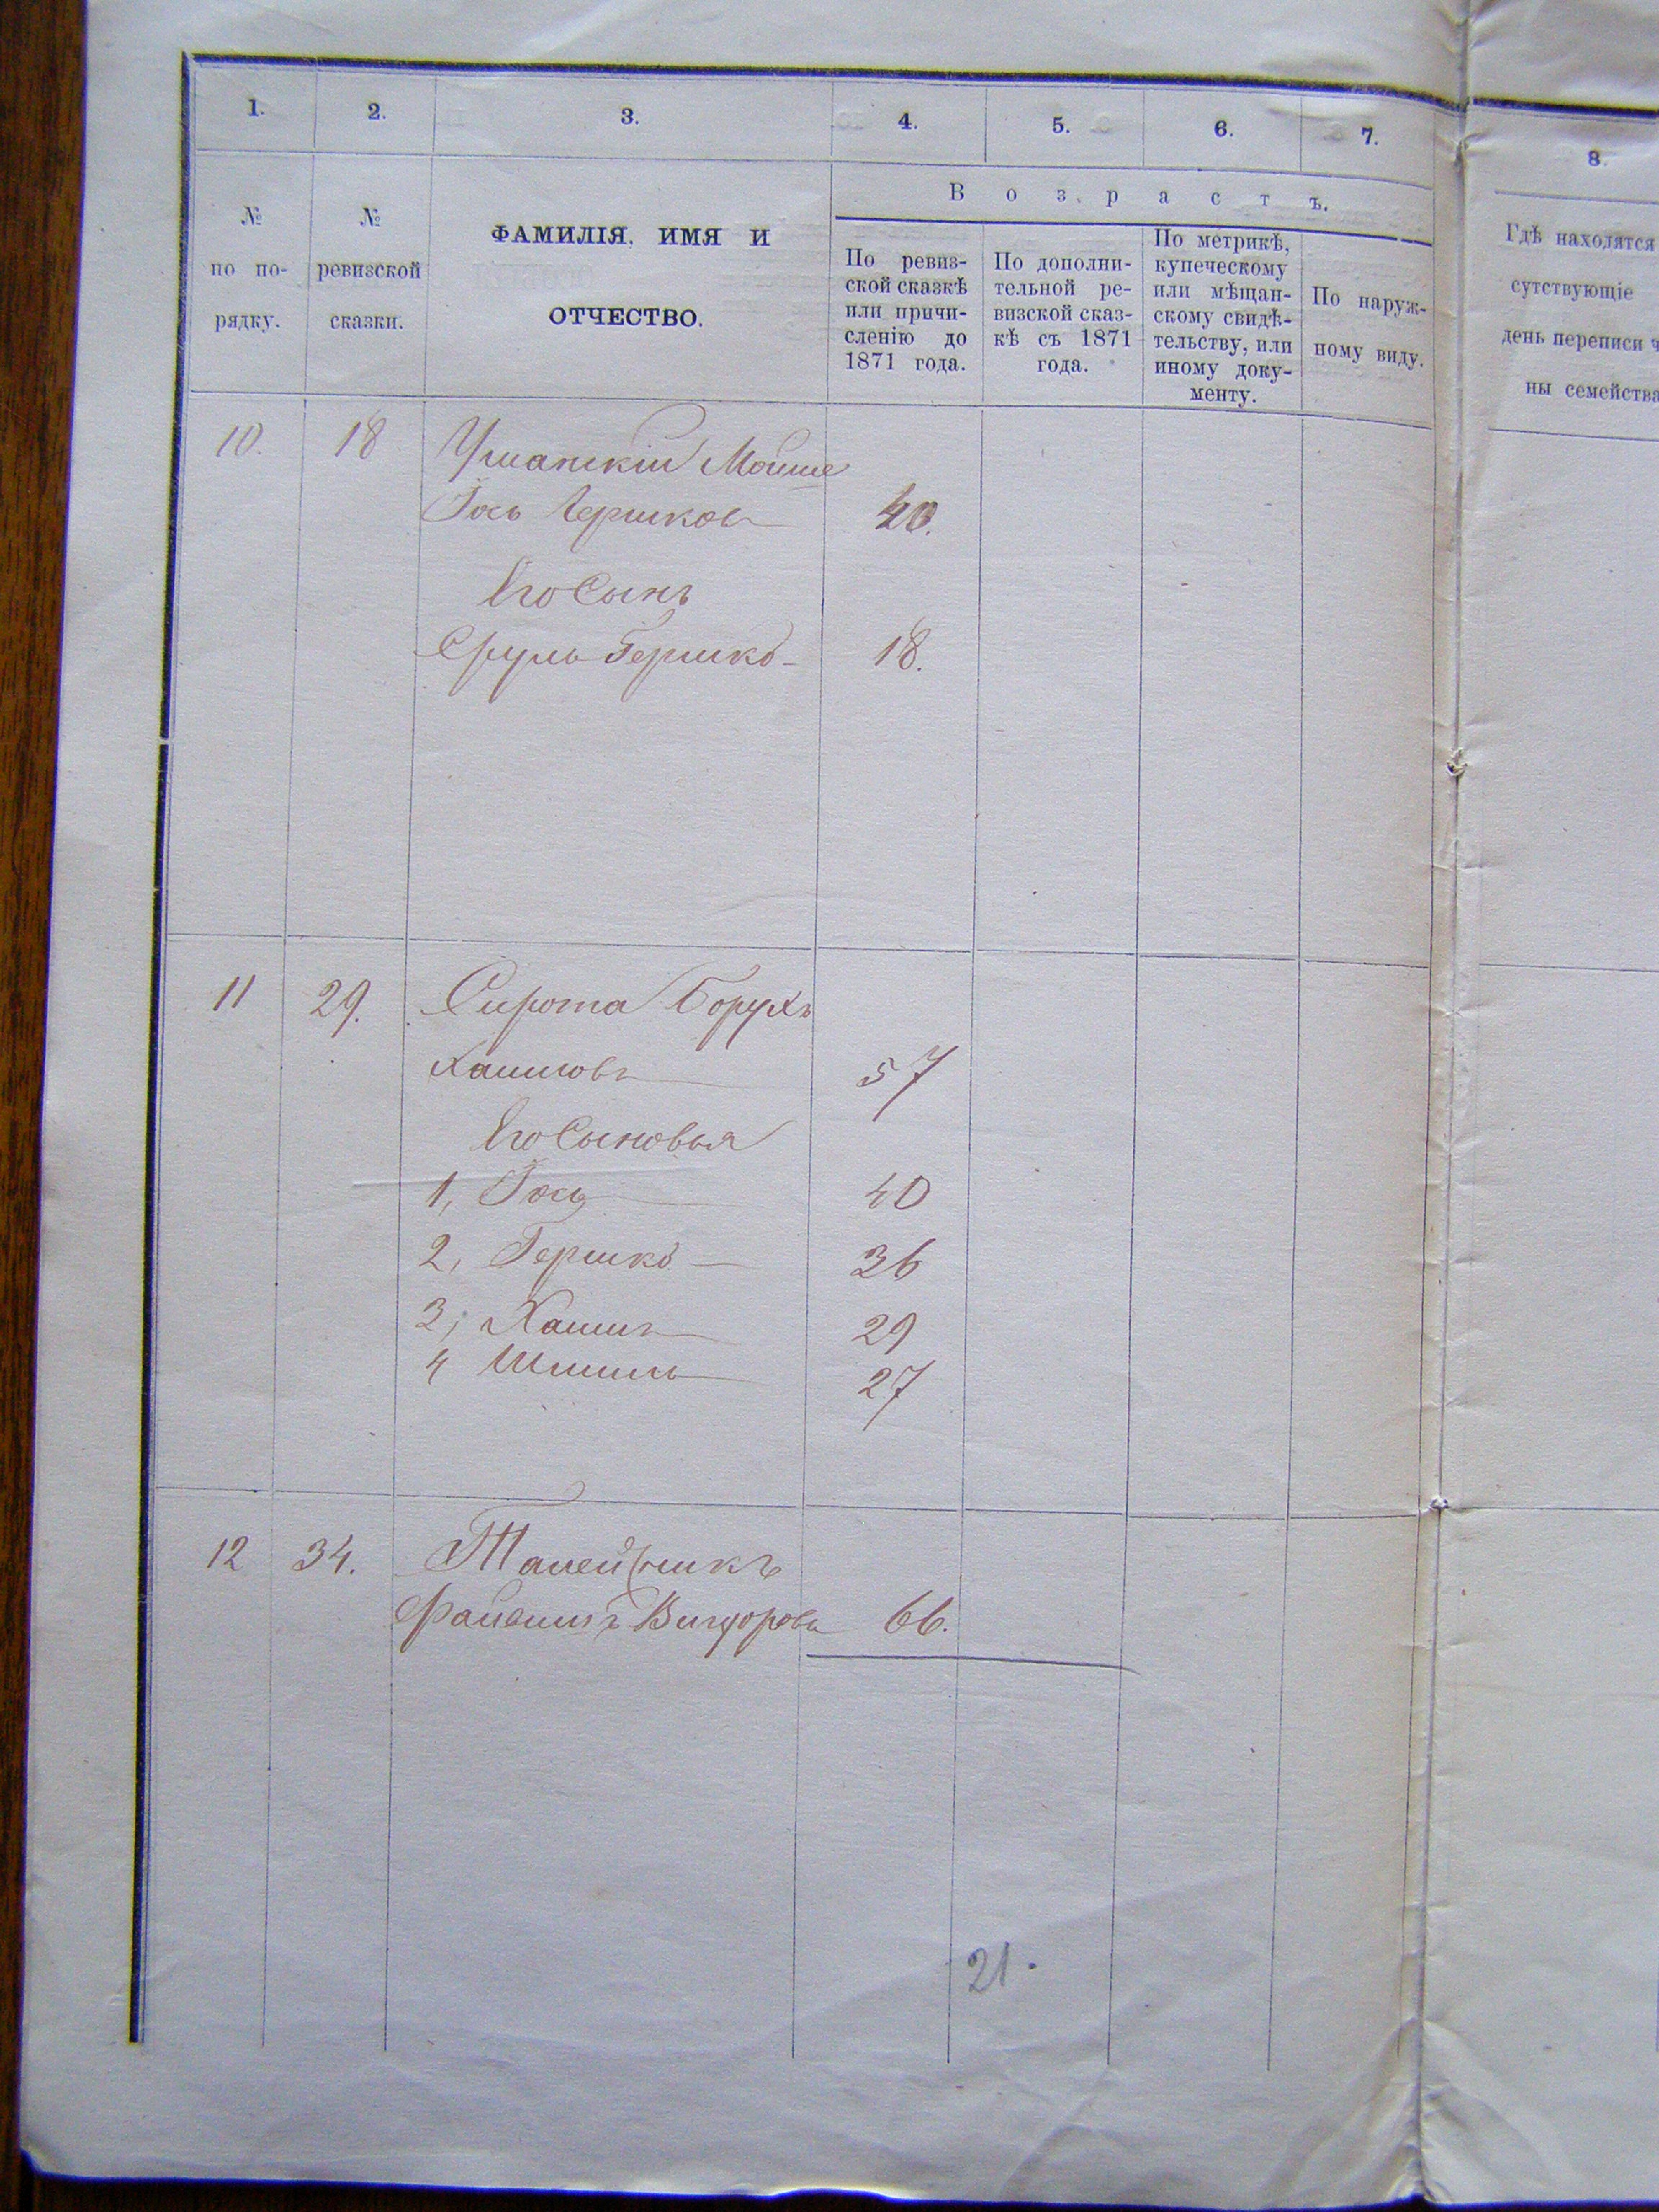 1. 2. 3. 4. 5. 6. 7. 8
№ по по-рядку.
№ ревизской сказки.
ФАМИЛІЯ, ИМЯ И
ОТЧЕСТВО.
Возрастъ.
По ревиз-
ской сказкѣ
или причи-
сленію до
1871 года.
По дополни-
тельной ре-
визской сказ-
кѣ съ 1871
года.
По метрикѣ,
купеческому
или мѣщан-
скому свидѣ-
тельству, или
иному доку-
менту.
По наруж-
ному виду.
Гдѣ находятся
сутствующіе
день переписи ч
ны семейства
10. 18 Уманскій Мошие
Іось Гершковъ 40.
Его Сынъ
Сруль Гершко 18.
11 29. Сирота Борухъ
Хаимовъ 57
Его Сыновья
1, Іось 40
2, Гершко 36
3, Хаимъ 29
4 Шмиль 27
12 34. Талейсникъ
Файвишъ Вигдоровъ 66.
21.